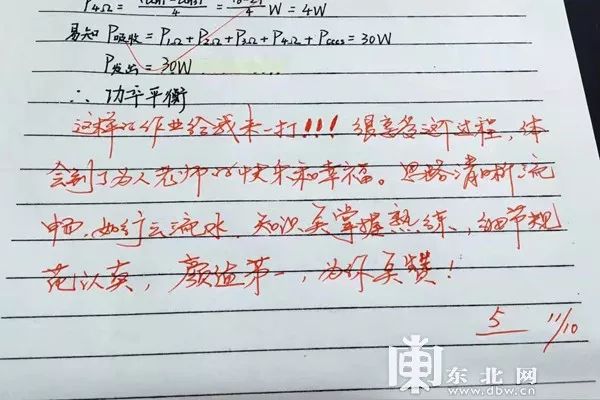 P4Ω = 4 = 4 W = 4W
易知 P吸收 = P1Ω + P2Ω + P3Ω + P4Ω + Pcccs = 30W
P发出 = 30W
∴ 功率平衡
这样的作业给我来一打!!! 很享受这个过程,体
会到了为人老师的快乐和幸福。思路清晰流
畅,如行云流水,知识点掌握熟练,细节规
范以真,颜值第一,为你点赞!
5 11/10
東北网
www.dbw.cn